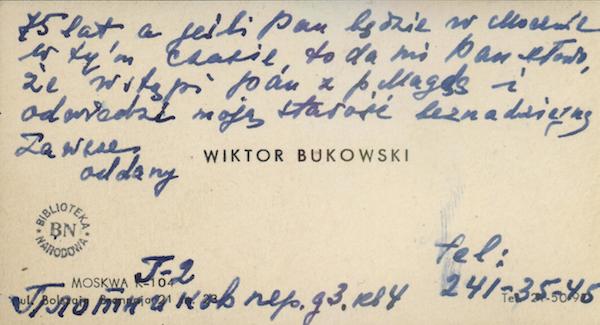 75 lat a jeśli Pan będzie w Mocenie
w tym czasie, to da mi Pan słowo,
że wstąpi Pan z p. Magdą i
odwiedzi moją starość beznadziejną
Zawsze
oddany
WIKTOR BUKOWSKI
BIBLIOTEKA
BN
NARODOWA
tel:
241-35-45
MOSKWA K-104
Г-2
ul. Bolszaja Bronnaja 21 m. 23
Плотников пер. д 3. кв 4